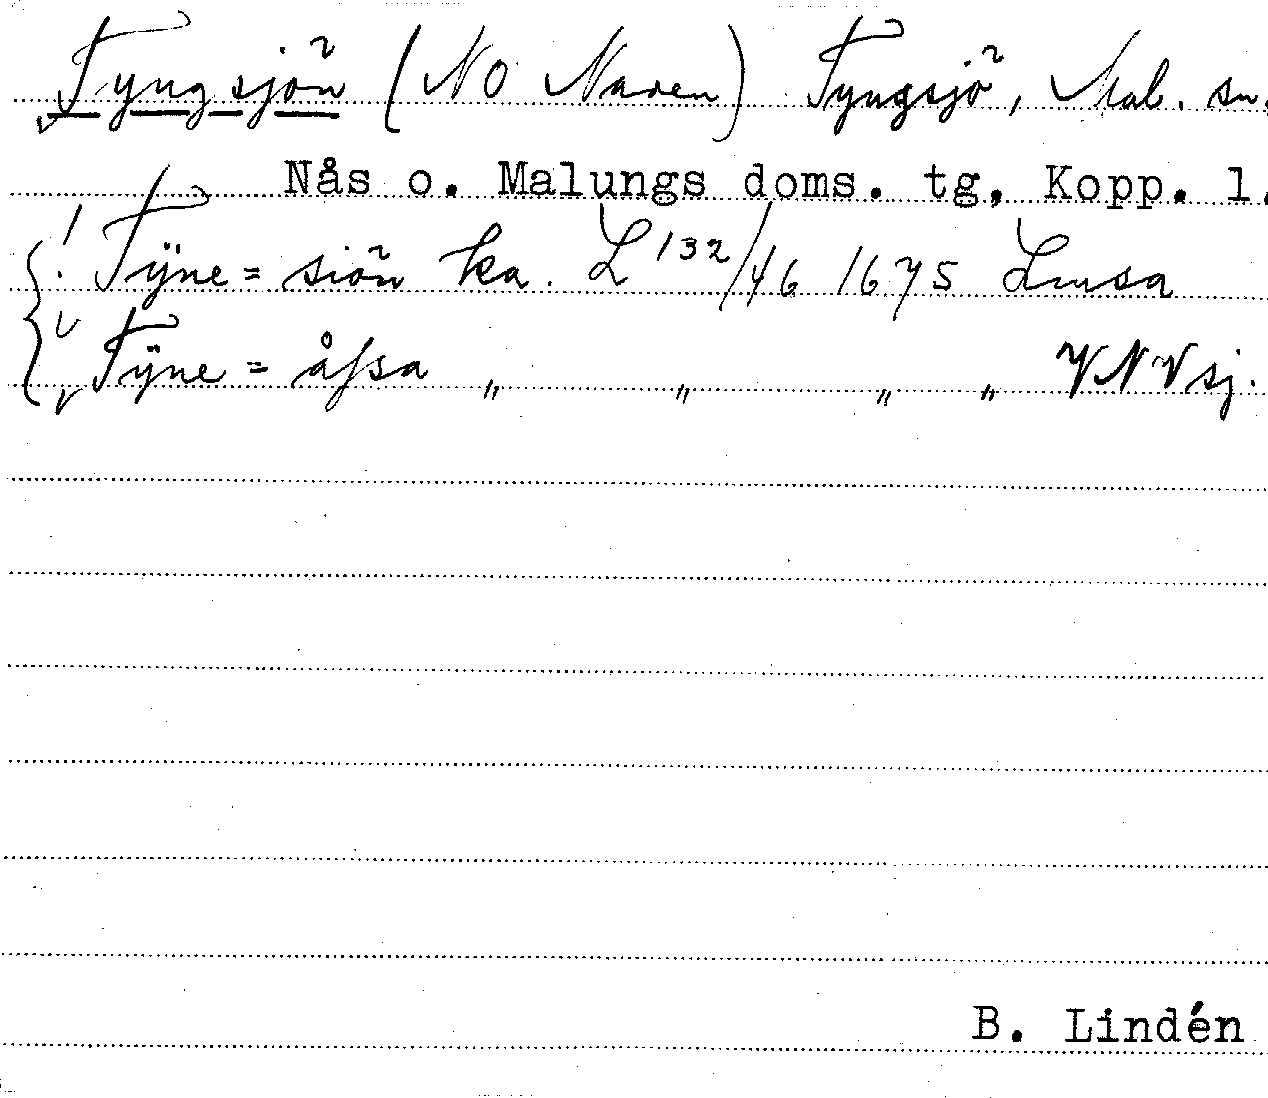 Tyngsjön (NO Naren) Tyngsjö, Mal. sn.
Nås o. Malungs doms. tg, Kopp. l.
! Tÿne=siön ka. L 132/46 1675 Limsa
Tÿne=åssa „ „ „ „ VNVsj.
B. Lindén